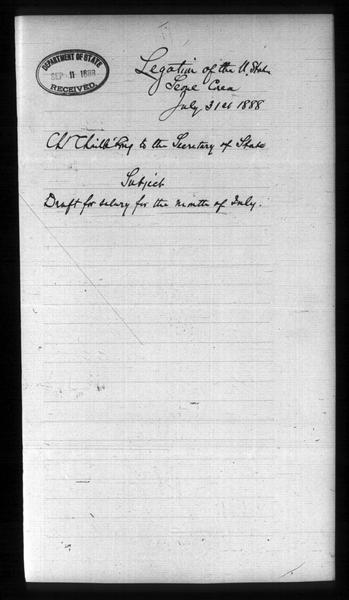 DEPARTMENT OF STATE
SEP 11 1888
RECEIVED
Legation of the U. States
Corea
July 31st 1888
to the Secretary of State
Subject
Draft for salary for the month of July.